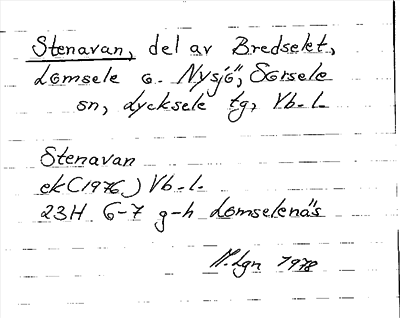 Stenavan, del av Bredselet,
Lomsele o. Nysjö, Sorsele
sn, Lycksele tg, Vb. l.
Stenavan
ek (1976) Vb. l.
23H 6-7 g-h Lomselenäs
H.Lgn 1978